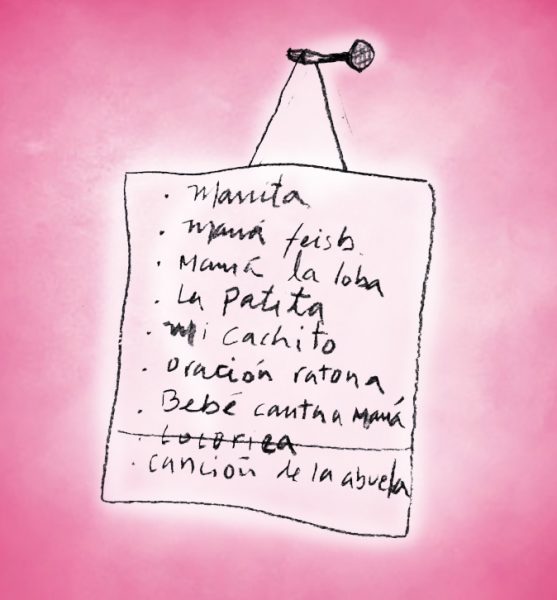 · Mamita
· Mamá feisb.
· Mamá la loba
· La Patita
· Mi cachito
· oración ratona
· Bebé cantua Mamá
· Locoriza
· canción de la abuela